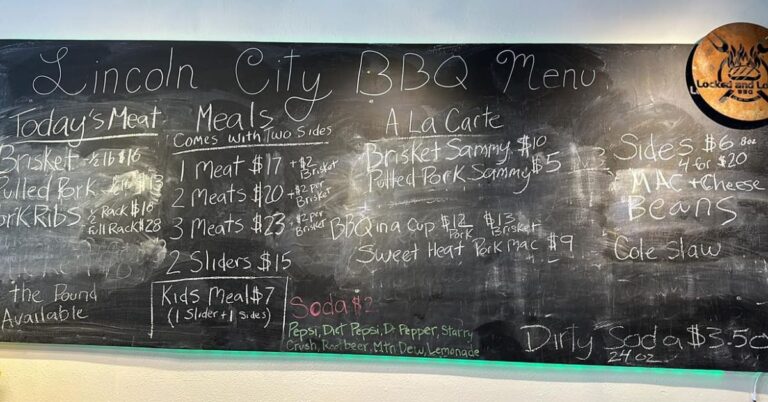 Lincoln City BBQ Menu
Locked and Lo
BBQ
Today's Meat
Brisket ½ lb $16
Pulled Pork ½ lb $13
ork Ribs ½ Rack $18
Full Rack $28
the Pound
Available
Meals
Comes with Two Sides
1 Meat $17 +$2 Brisket
2 Meats $20 +$2 Per Brisket
3 Meats $23 +$2 Per Brisket
2 Sliders $15
Kids Meal $7
(1 Slider + 1 Sides)
A La Carte
Brisket Sammy $10
Pulled Pork Sammy $5
BBQ in a Cup $12 Pork $13 Brisket
Sweet Heat Pork Mac $9
Soda $2
Pepsi, Diet Pepsi, Dr Pepper, Starry
Crush, Rootbeer, Mtn Dew, Lemonade
Sides $6 8oz
4 for $20
Mac + Cheese
Beans
Cole Slaw
Dirty Soda $3.50
24 oz